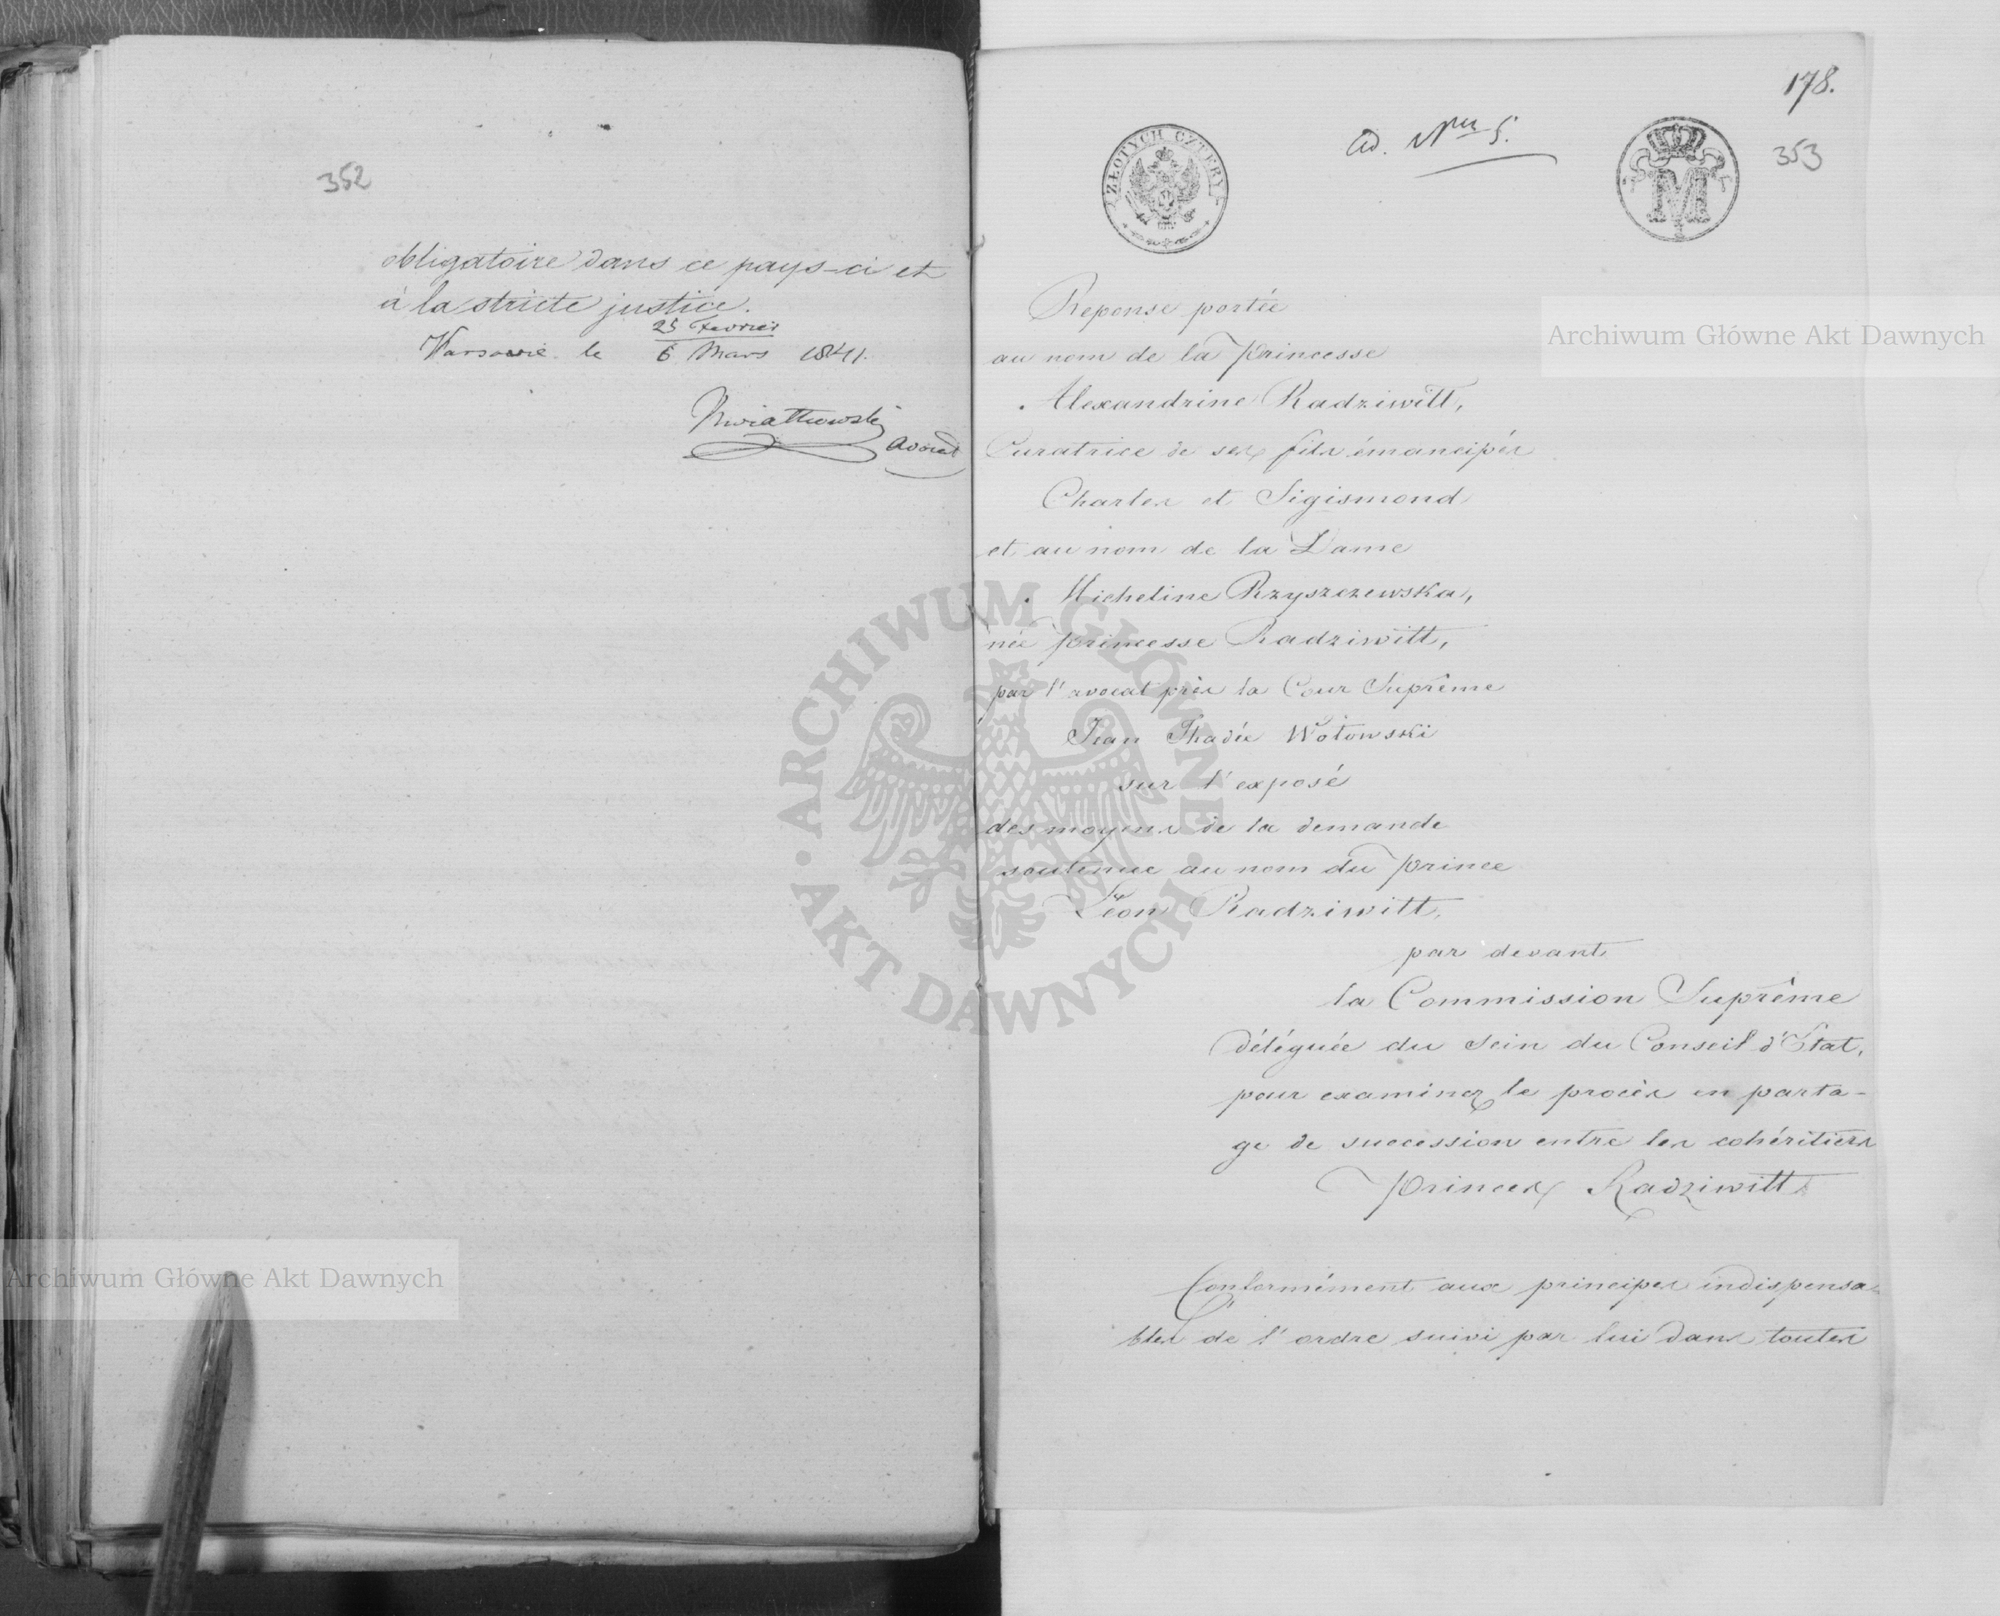 352
obligatoire dans ce pays-ci et
à la stricte justice.
25 Fevrier
Varsovie le 6 Mars 1841.
Kwiatkowski
avocat
178.
ad. Nru 5.
353
ZŁOTYCH CZTERY
M
Reponse portée
au nom de la Princesse
Alexandrine Radziwiłł,
Curatrice de ses fils émancipés
Charles et Sigismond
et au nom de la Dame
Micheline Rzyszczewska,
née Princesse Radziwiłł,
par l'avocat près la Cour Suprême
Jean Thadée Wołowski
sur l'exposé
des moyens de la demande
soutenue au nom du Prince
Léon Radziwiłł,
par devant
la Commission Suprême
déléguée du sein du Conseil d'État,
pour examiner le procès en parta-
ge de succession entre les cohéritiers
Princes Radziwiłł
Conformément aux principes indispensa-
bles de l'ordre suivi par lui dans toutes
Archiwum Główne Akt Dawnych
Archiwum Główne Akt Dawnych
ARCHIWUM GŁÓWNE AKT DAWNYCH